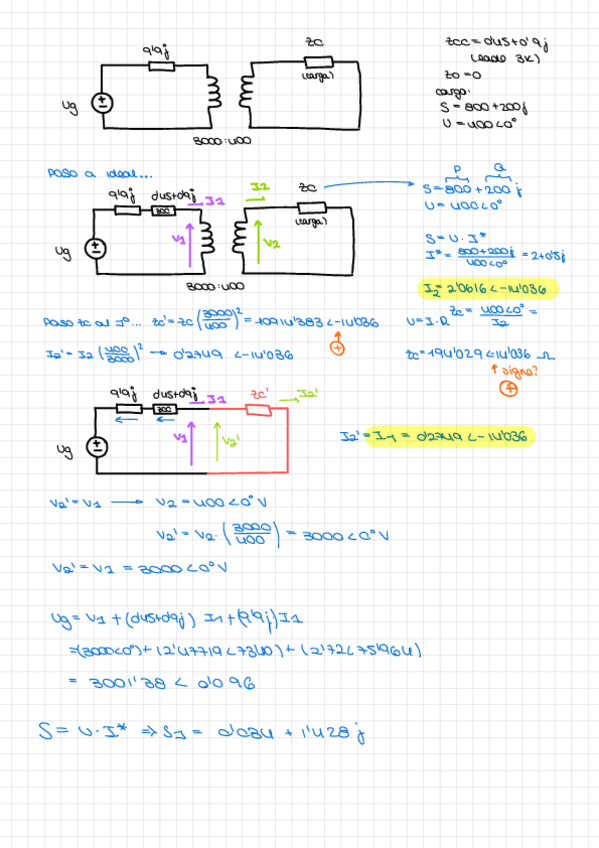 9'9j
Zc
(carga)
Ug
3000:400
Zcc = 0'45+0'9j
(lado 3K)
Z0=0
carga:
S = 800+200j
U = 400∠0°
Paso a ideal...
9'9j 0'45+0'9j I1 I2 Zc
Zcc
(carga)
Ug V1 V2
3000:400
P Q
S = 800+200j
U = 400∠0°
S = U·I*
I* = 800+200j / 400∠0° = 2+0'5j
I2 = 2'0616∠-14'036
U=I·R Zc = 400∠0° / I2 =
Zc = 194'029∠14'036 Ω
signo?
+
Paso Zc al 1º... Zc' = Zc (3000/400)² = 10914'383∠-14'036
+
I2' = I2 (400/3000)² → 0'2749 ∠-14'036
9'9j 0'45+0'9j I1 Zc' I2'
Zcc
Ug V1 V2'
I2' = I1 = 0'2749∠-14'036
V2' = V1 → V2 = 400∠0° V
V2' = V2·(3000/400) = 3000∠0° V
V2' = V1 = 3000∠0° V
Ug = V1 + (0'45+0'9j) I1 + (9'9j) I1
=(3000∠0°)+(2'47719∠73'40)+(2'72∠75'964)
= 3001'38 ∠ 0'096
S = U·I* ⇒ S1 = 0'034 + 1'428j